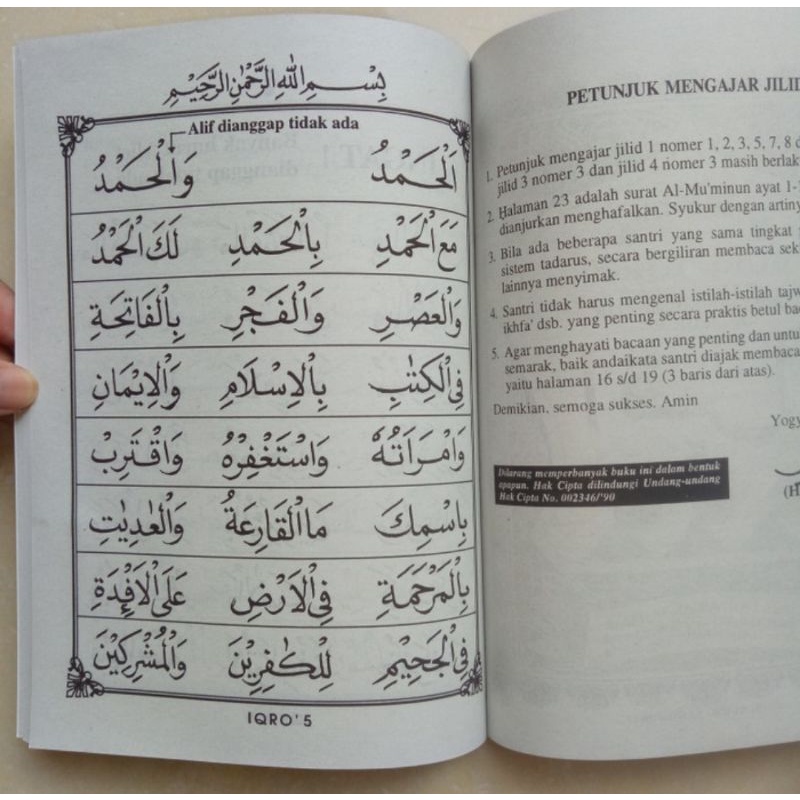 بِسْمِ اللهِ الرَّحْمٰنِ الرَّحِيْمِ
Alif dianggap tidak ada
اَلْحَمْدُ وَالْحَمْدُ
مَعَ الْحَمْدِ بِالْحَمْدِ لَكَ الْحَمْدُ
وَالْعَصْرِ وَالْفَجْرِ بِالْفَاتِحَةِ
فِى الْكِتٰبِ بِالْاِسْلَامِ وَالْاِيْمَانِ
وَامْرَاَتُهٗ وَاسْتَغْفِرْهُ وَاقْتَرِبْ
بِاسْمِكَ مَاالْقَارِعَةُ وَالْعٰدِيٰتِ
بِالْمَرْحَمَةِ فِى الْاَرْضِ عَلَى الْاَفْـِٕدَةِ
فِى الْجَحِيْمِ لِلْكٰفِرِيْنَ وَالْمُشْرِكِيْنَ
IQRO' 5
PETUNJUK MENGAJAR JILID
1. Petunjuk mengajar jilid 1 nomer 1, 2, 3, 5, 7, 8
jilid 3 nomer 3 dan jilid 4 nomer 3 masih
2. Halaman 23 adalah surat Al-Mu'minun ayat
dianjurkan menghafalkan. Syukur dengan
3. Bila ada beberapa santri yang sama tingkat
sistem tadarus, secara bergiliran membaca
lainnya menyimak.
4. Santri tidak harus mengenal istilah-istilah
ikhfa' dsb. yang penting secara praktis betul
5. Agar menghayati bacaan yang penting dan
semarak, baik andaikata santri diajak
yaitu halaman 16 s/d 19 (3 baris dari atas).
Demikian, semoga sukses. Amin
Yogy
(H
Dilarang memperbanyak buku ini dalam bentuk
apapun. Hak Cipta dilindungi Undang-undang
Hak Cipta No. 002346/'90